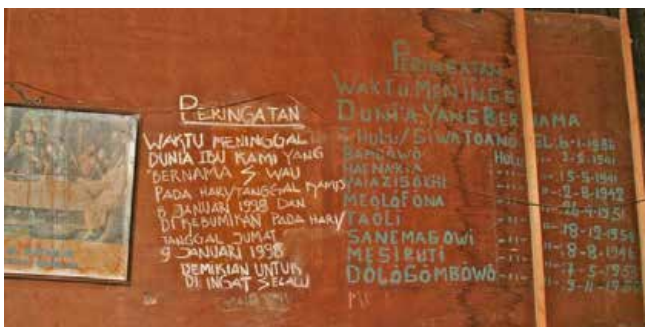 PERINGATAN
WAKTU MENINGGAL
DUNIA IBU KAMI YANG
BERNAMA S WAU
PADA HARI/TANGGAL KAMIS
8 JANUARI 1998 DAN
DI KEBUMIKAN PADA HARI/
TANGGAL JUMAT
9 JANUARI 1998
DEMIKIAN UNTUK
DI INGAT SELALU
PERINGATAN
WAKTU MENINGG
DUNIA YANG BERNAMA
HULU/SIWATOANO
BAMOAWO HULU -"- 1941
-"- 15-5-1941
-"- 2-8-1942
MEOLOFONA -"- 26-4-1951
TAOLI -"- 18-12-195
SANEMAGOWI -"- 8-8-194
MESIRUTI -"- 7-5-195
DOLOGOMBOWO -"- 9-11-19